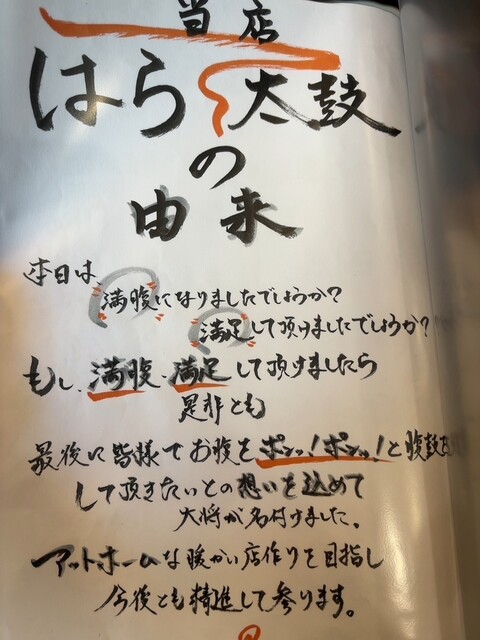 当店
はら太鼓
の
由来
本日は、
満腹になりましたでしょうか?
満足して頂けましたでしょうか?
もし、満腹、満足して頂けましたら
是非とも
最後に皆様でお腹をポンッ!ポンッ!と腹鼓を
して頂きたいとの想いを込めて
大将が名付けました。
アットホームな暖かい店作りを目指し
今後とも精進して参ります。